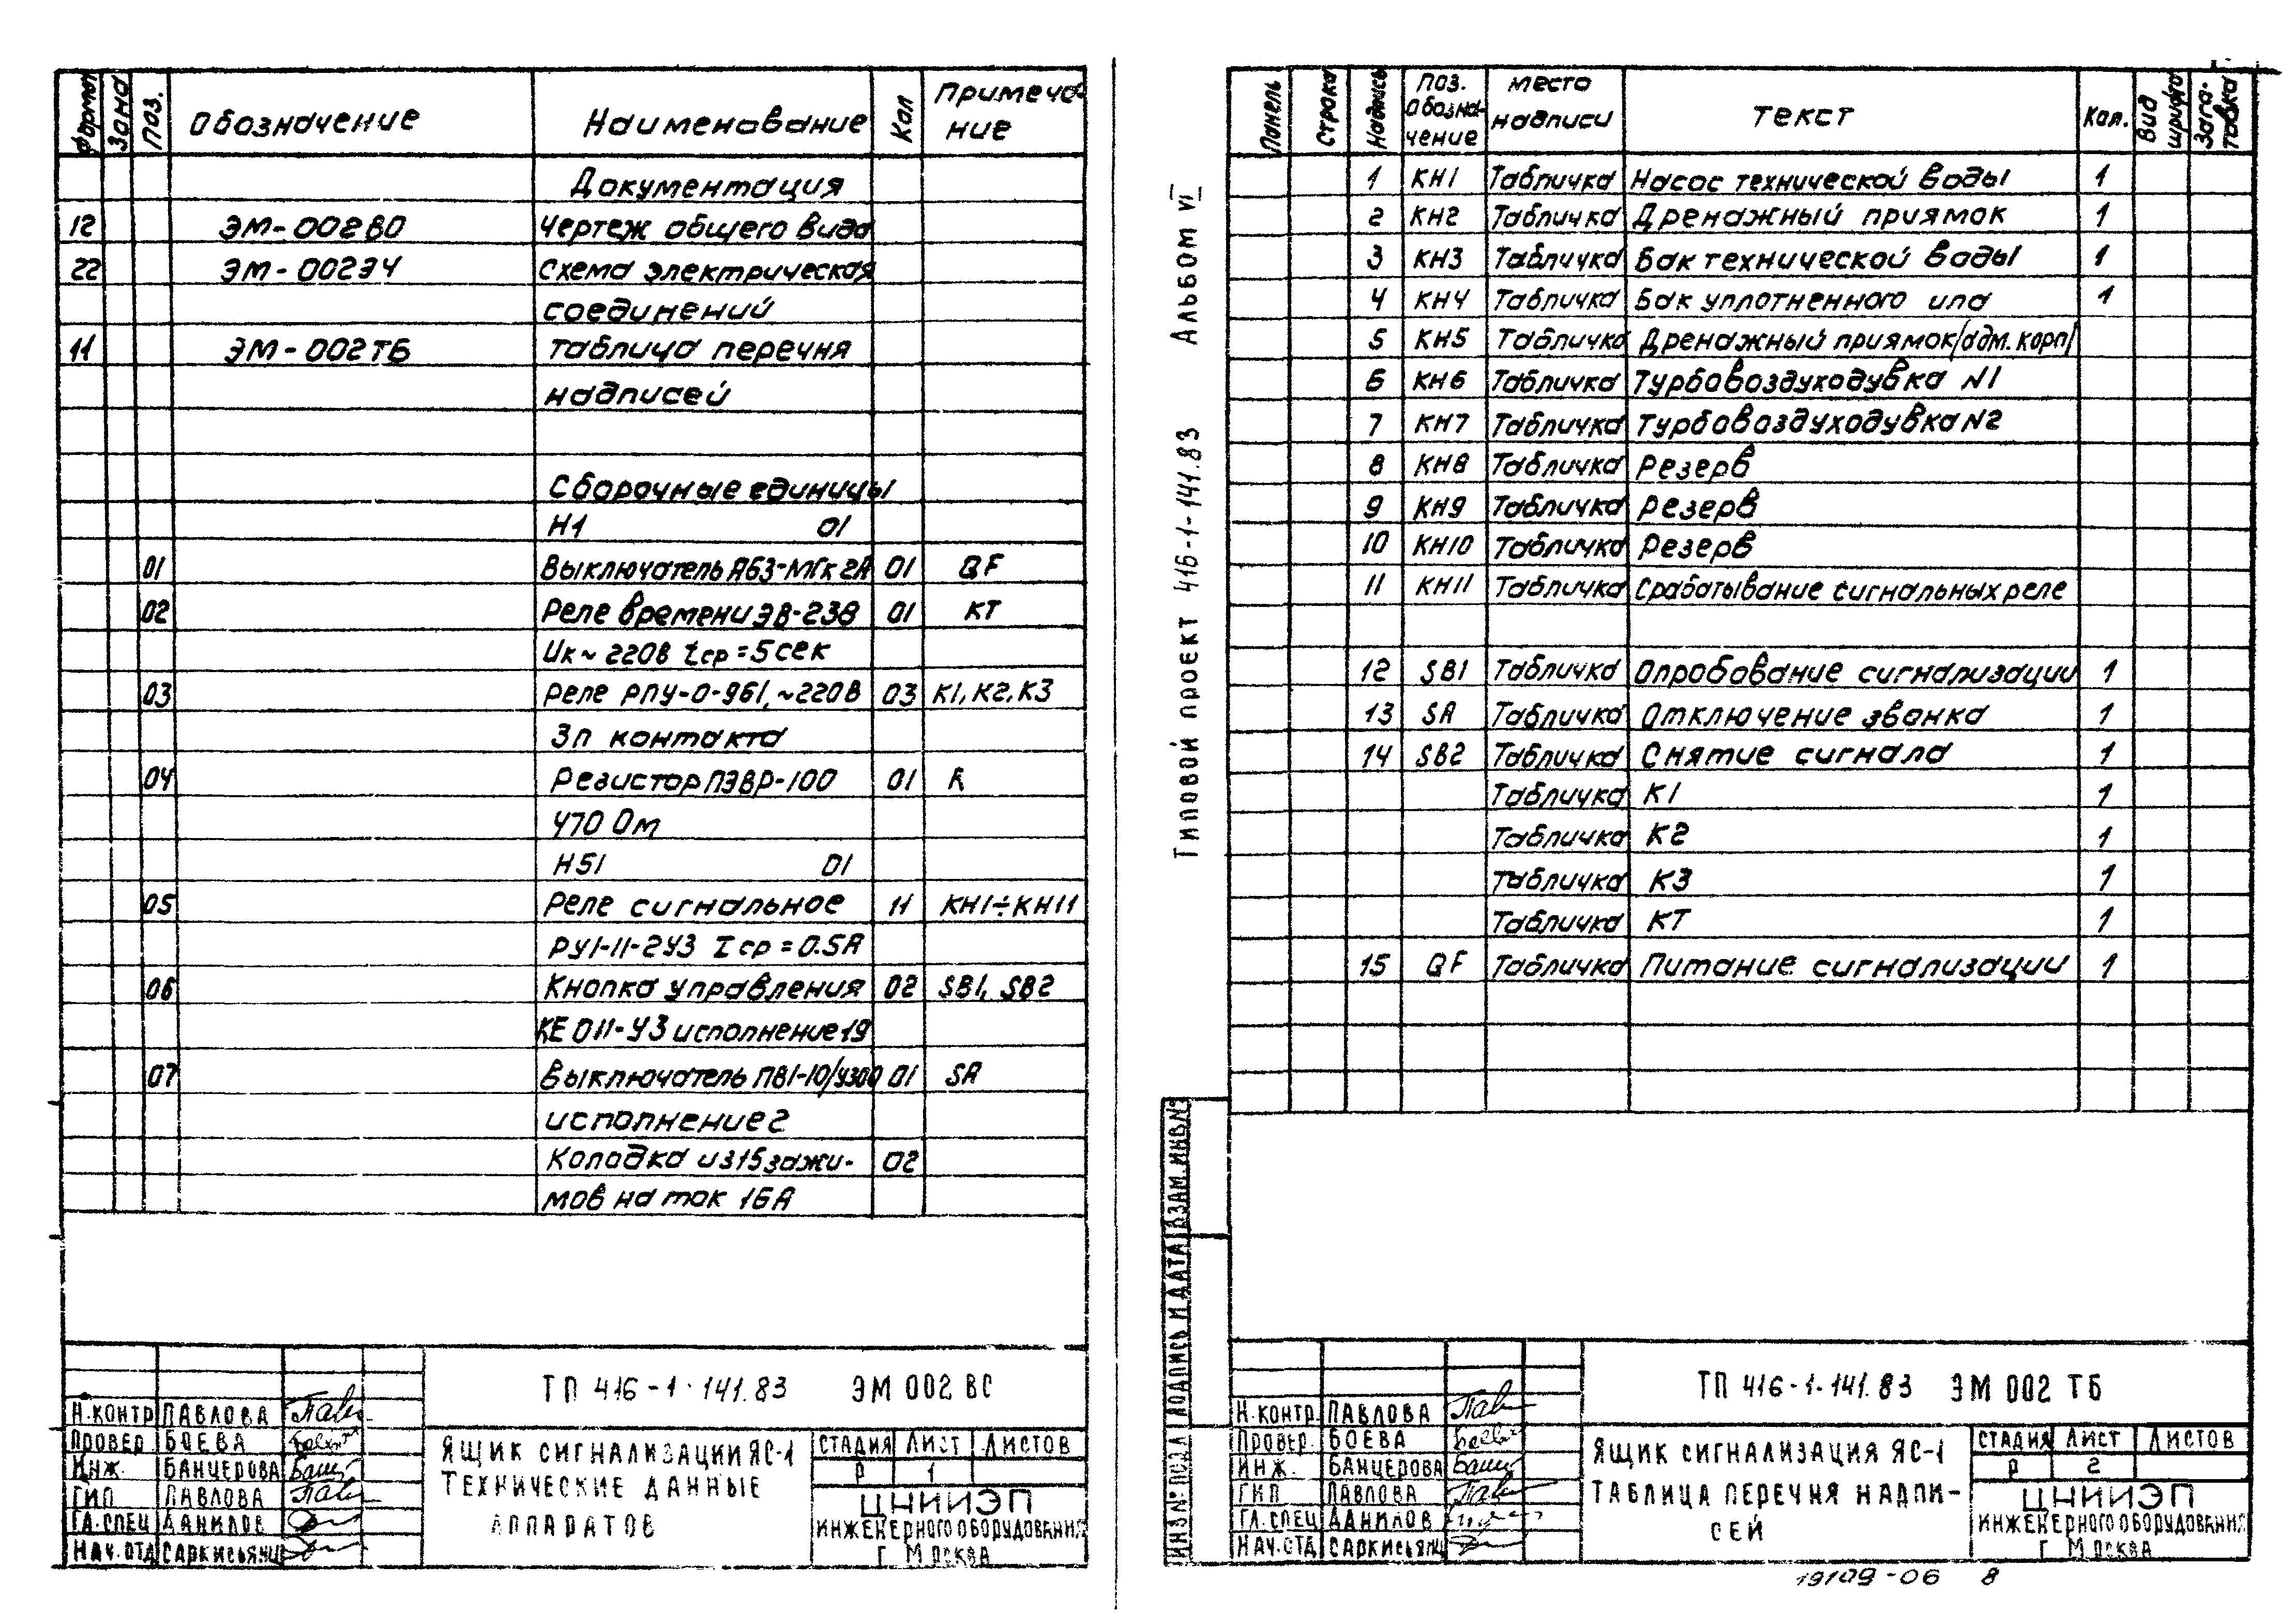 Формат Зона Поз. Обозначение Наименование Кол Примеча-
ние
Документация
12 ЭМ-002В0 Чертеж общего вида
22 ЭМ-002Э4 Схема электрическая
соединений
11 ЭМ-002ТБ Таблица перечня
надписей
Сборочные единицы
Н1 01
01 Выключатель А63-МГк2А 01 QF
02 Реле времени ЭВ-238 01 КТ
Uк~220В tср=5сек
03 Реле РПУ-0-961,~220В 03 К1, К2, К3
3п контакта
04 Резистор ПЭВР-100 01 R
470 Ом
Н51 01
05 Реле сигнальное 11 КН1÷КН11
РУ1-11-2У3 Iср=0.5А
06 Кнопка управления 02 SB1, SB2
КЕ011-У3 исполнение19
07 Выключатель ПВ1-10/У300 01 SA
исполнение2
Колодка из15зажи- 02
мов на ток 16А
ТП 416-1-141.83 ЭМ 002 ВС
Н.КОНТР ПАВЛОВА
ПРОВЕР БОЕВА
ИНЖ. БАНЦЕРОВА
ГИП ПАВЛОВА
ГЛ.СПЕЦ ДАНИЛОВ
НАЧ.ОТД САРКИСЬЯНЦ
ЯЩИК СИГНАЛИЗАЦИИ ЯС-1
ТЕХНИЧЕСКИЕ ДАННЫЕ
АППАРАТОВ
СТАДИЯ ЛИСТ ЛИСТОВ
Р 1
ЦНИИЭП
ИНЖЕНЕРНОГО ОБОРУДОВАНИЯ
Г. МОСКВА
Типовой проект 416-1-141.83 Альбом VI
Панель Строка Надпись Поз. Обозна-
чение Место
надписи Текст Кол. Вид шрифта Заго-
товка
1 КН1 Табличка Насос технической воды 1
2 КН2 Табличка Дренажный приямок 1
3 КН3 Табличка Бак технической воды 1
4 КН4 Табличка Бак уплотненного ила 1
5 КН5 Табличка Дренажный приямок/адм.корп/
6 КН6 Табличка Турбовоздуходувка N1
7 КН7 Табличка Турбовоздуходувка N2
8 КН8 Табличка Резерв
9 КН9 Табличка Резерв
10 КН10 Табличка Резерв
11 КН11 Табличка Срабатывание сигнальных реле
12 SB1 Табличка Опробование сигнализации 1
13 SA Табличка Отключение звонка 1
14 SB2 Табличка Снятие сигнала 1
Табличка К1 1
Табличка К2 1
Табличка К3 1
Табличка КТ 1
15 QF Табличка Питание сигнализации 1
ИНВ№ПОДЛ ПОДПИСЬ И ДАТА ВЗАМ.ИНВ№
ТП 416-1-141.83 ЭМ 002 ТБ
Н.КОНТР. ПАВЛОВА
ПРОВЕР. БОЕВА
ИНЖ. БАНЦЕРОВА
ГИП ПАВЛОВА
ГЛ.СПЕЦ ДАНИЛОВ
НАЧ.ОТД САРКИСЬЯНЦ
ЯЩИК СИГНАЛИЗАЦИЯ ЯС-1
ТАБЛИЦА ПЕРЕЧНЯ НАДПИ-
СЕЙ
СТАДИЯ ЛИСТ ЛИСТОВ
Р 2
ЦНИИЭП
ИНЖЕНЕРНОГО ОБОРУДОВАНИЯ
Г. МОСКВА
19109-06 8